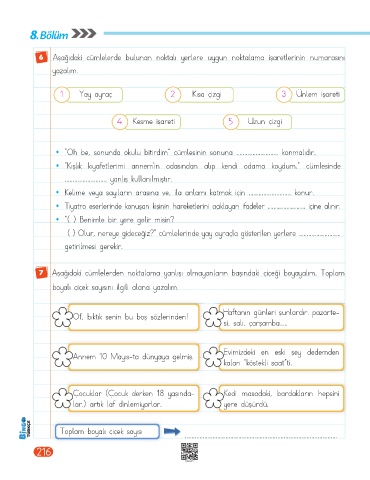 8. Bölüm
6 Aşağıdaki cümlelerde bulunan noktalı yerlere uygun noktalama işaretlerinin numarasını
yazalım.
1 Yay ayraç
2 Kısa çizgi
3 Ünlem işareti
4 Kesme işareti
5 Uzun çizgi
• "Oh be, sonunda okulu bitirdim" cümlesinin sonuna ........................ konmalıdır.
• "Kışlık kıyafetlerimi annem'in odasından alıp kendi odama koydum." cümlesinde
........................ yanlış kullanılmıştır.
• Kelime veya sayıların arasına ve, ila anlamı katmak için ........................ konur.
• Tiyatro eserlerinde konuşan kişinin hareketlerini açıklayan ifadeler ........................ içine alınır.
• "( ) Benimle bir yere gelir misin?
( ) Olur, nereye gideceğiz?" cümlelerinde yay ayraçla gösterilen yerlere ........................
getirilmesi gerekir.
7 Aşağıdaki cümlelerden noktalama yanlışı olmayanların başındaki çiçeği boyayalım. Toplam
boyalı çiçek sayısını ilgili alana yazalım.
Of, bıktık senin bu boş sözlerinden!
Haftanın günleri şunlardır: pazarte-
si, salı, çarşamba....
Annem 10 Mayıs-ta dünyaya gelmiş.
Evimizdeki en eski şey dedemden
kalan "köstekli saat"ti.
Çocuklar (Çocuk derken 18 yaşında-
lar.) artık laf dinlemiyorlar.
Kedi masadaki, bardakların hepsini
yere düşürdü.
Toplam boyalı çiçek sayısı
BİNGO
TÜRKÇE
216